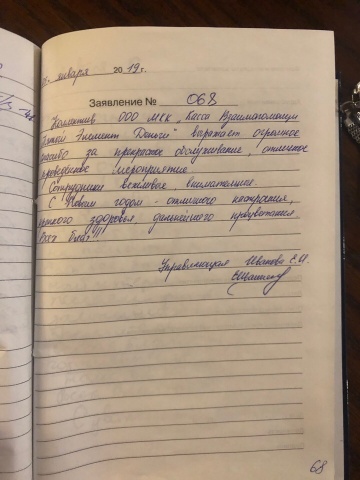 января 2019 г.
Заявление № 068
Коллектив ООО МКК „Касса Взаимопомощи
Пятый Элемент Деньги" выражает огромное
спасибо за прекрасное обслуживание, отличное
проведенное мероприятие.
Сотрудники вежливые, внимательные.
С Новым годом - отличного настроения,
крепкого здоровья, дальнейшего процветания.
Всех благ!!!
Управляющая Иванова С.И.
68